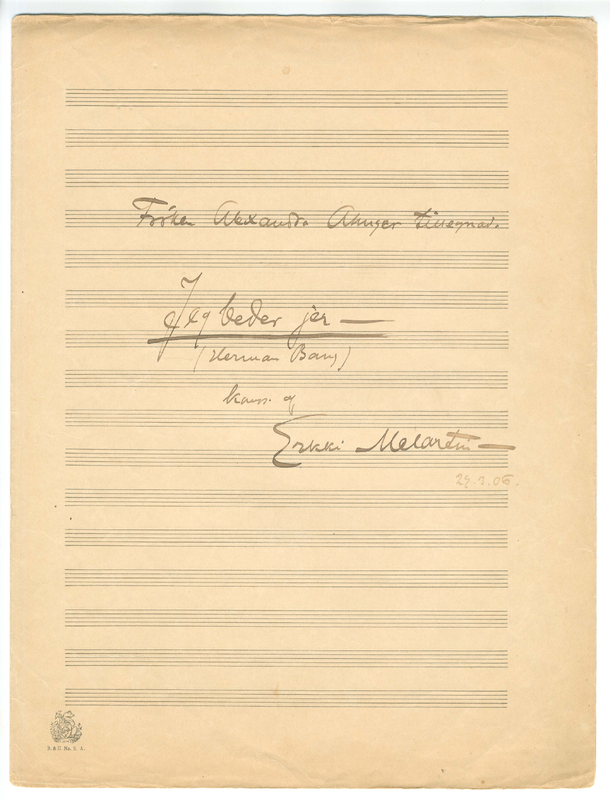 Fröken Alexandra Ahnger tillegnad.
Jeg beder jer —
(Herman Bang)
komp. af
Erkki Melartin —
.06.
B. & H. No. 5. A.